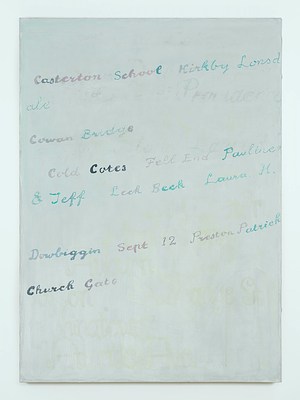 Casterton School Kirkby Lonsd
ale
Cowan Bridge
Cold Cotes Fell End Pauline
& Jeff Leck Beck Laura H.
Dowbiggin Sept 12 Preston Patrick
Church Gate